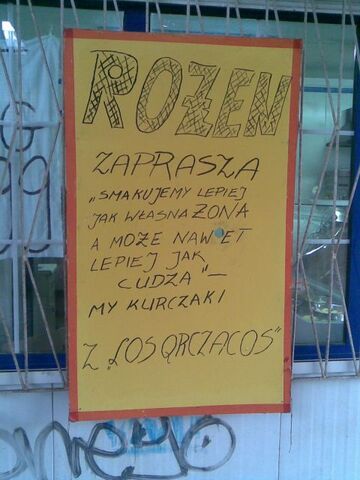 ROŻEN
ZAPRASZA
„SMAKUJEMY LEPIEJ
JAK WŁASNA ŻONA
A MOŻE NAWET
LEPIEJ JAK
CUDZA" —
MY KURCZAKI
Z „LOS QRCZACOS"